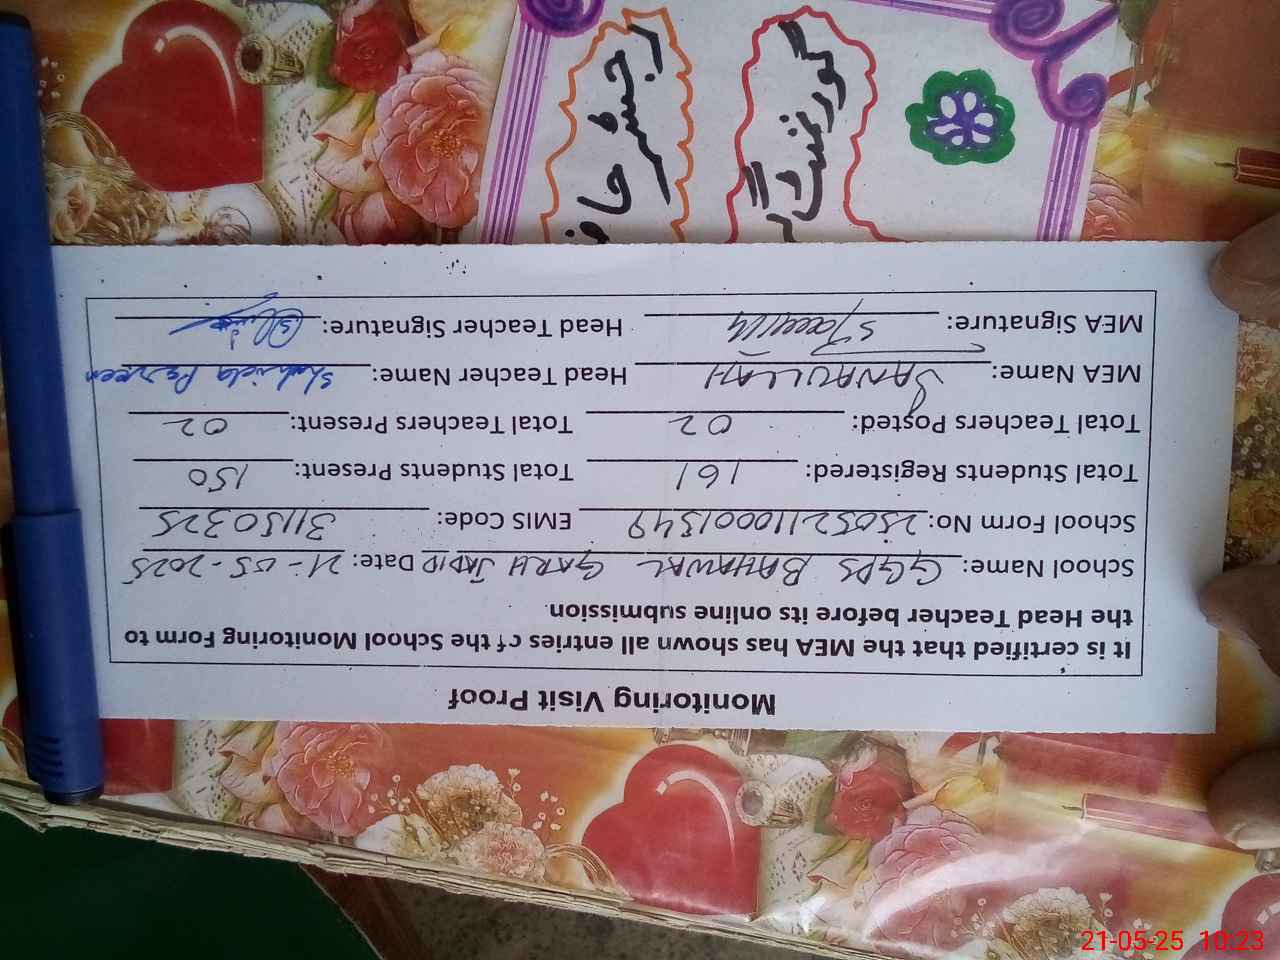 Monitoring Visit Proof
It is certified that the MEA has shown all entries of the School Monitoring Form to
the Head Teacher before its online submission.
School Name: GGPS BAHAWAL GARH JADID Date: 21-05-2025
School Form No: 25052110001549 EMIS Code: 31150325
Total Students Registered: 161 Total Students Present: 150
Total Teachers Posted: 02 Total Teachers Present: 02
MEA Name: SANAULLAH Head Teacher Name: Shahida Parveen
MEA Signature: Head Teacher Signature:
گورنمنٹ گر
رجسٹر حاض
21-05-25 10:23